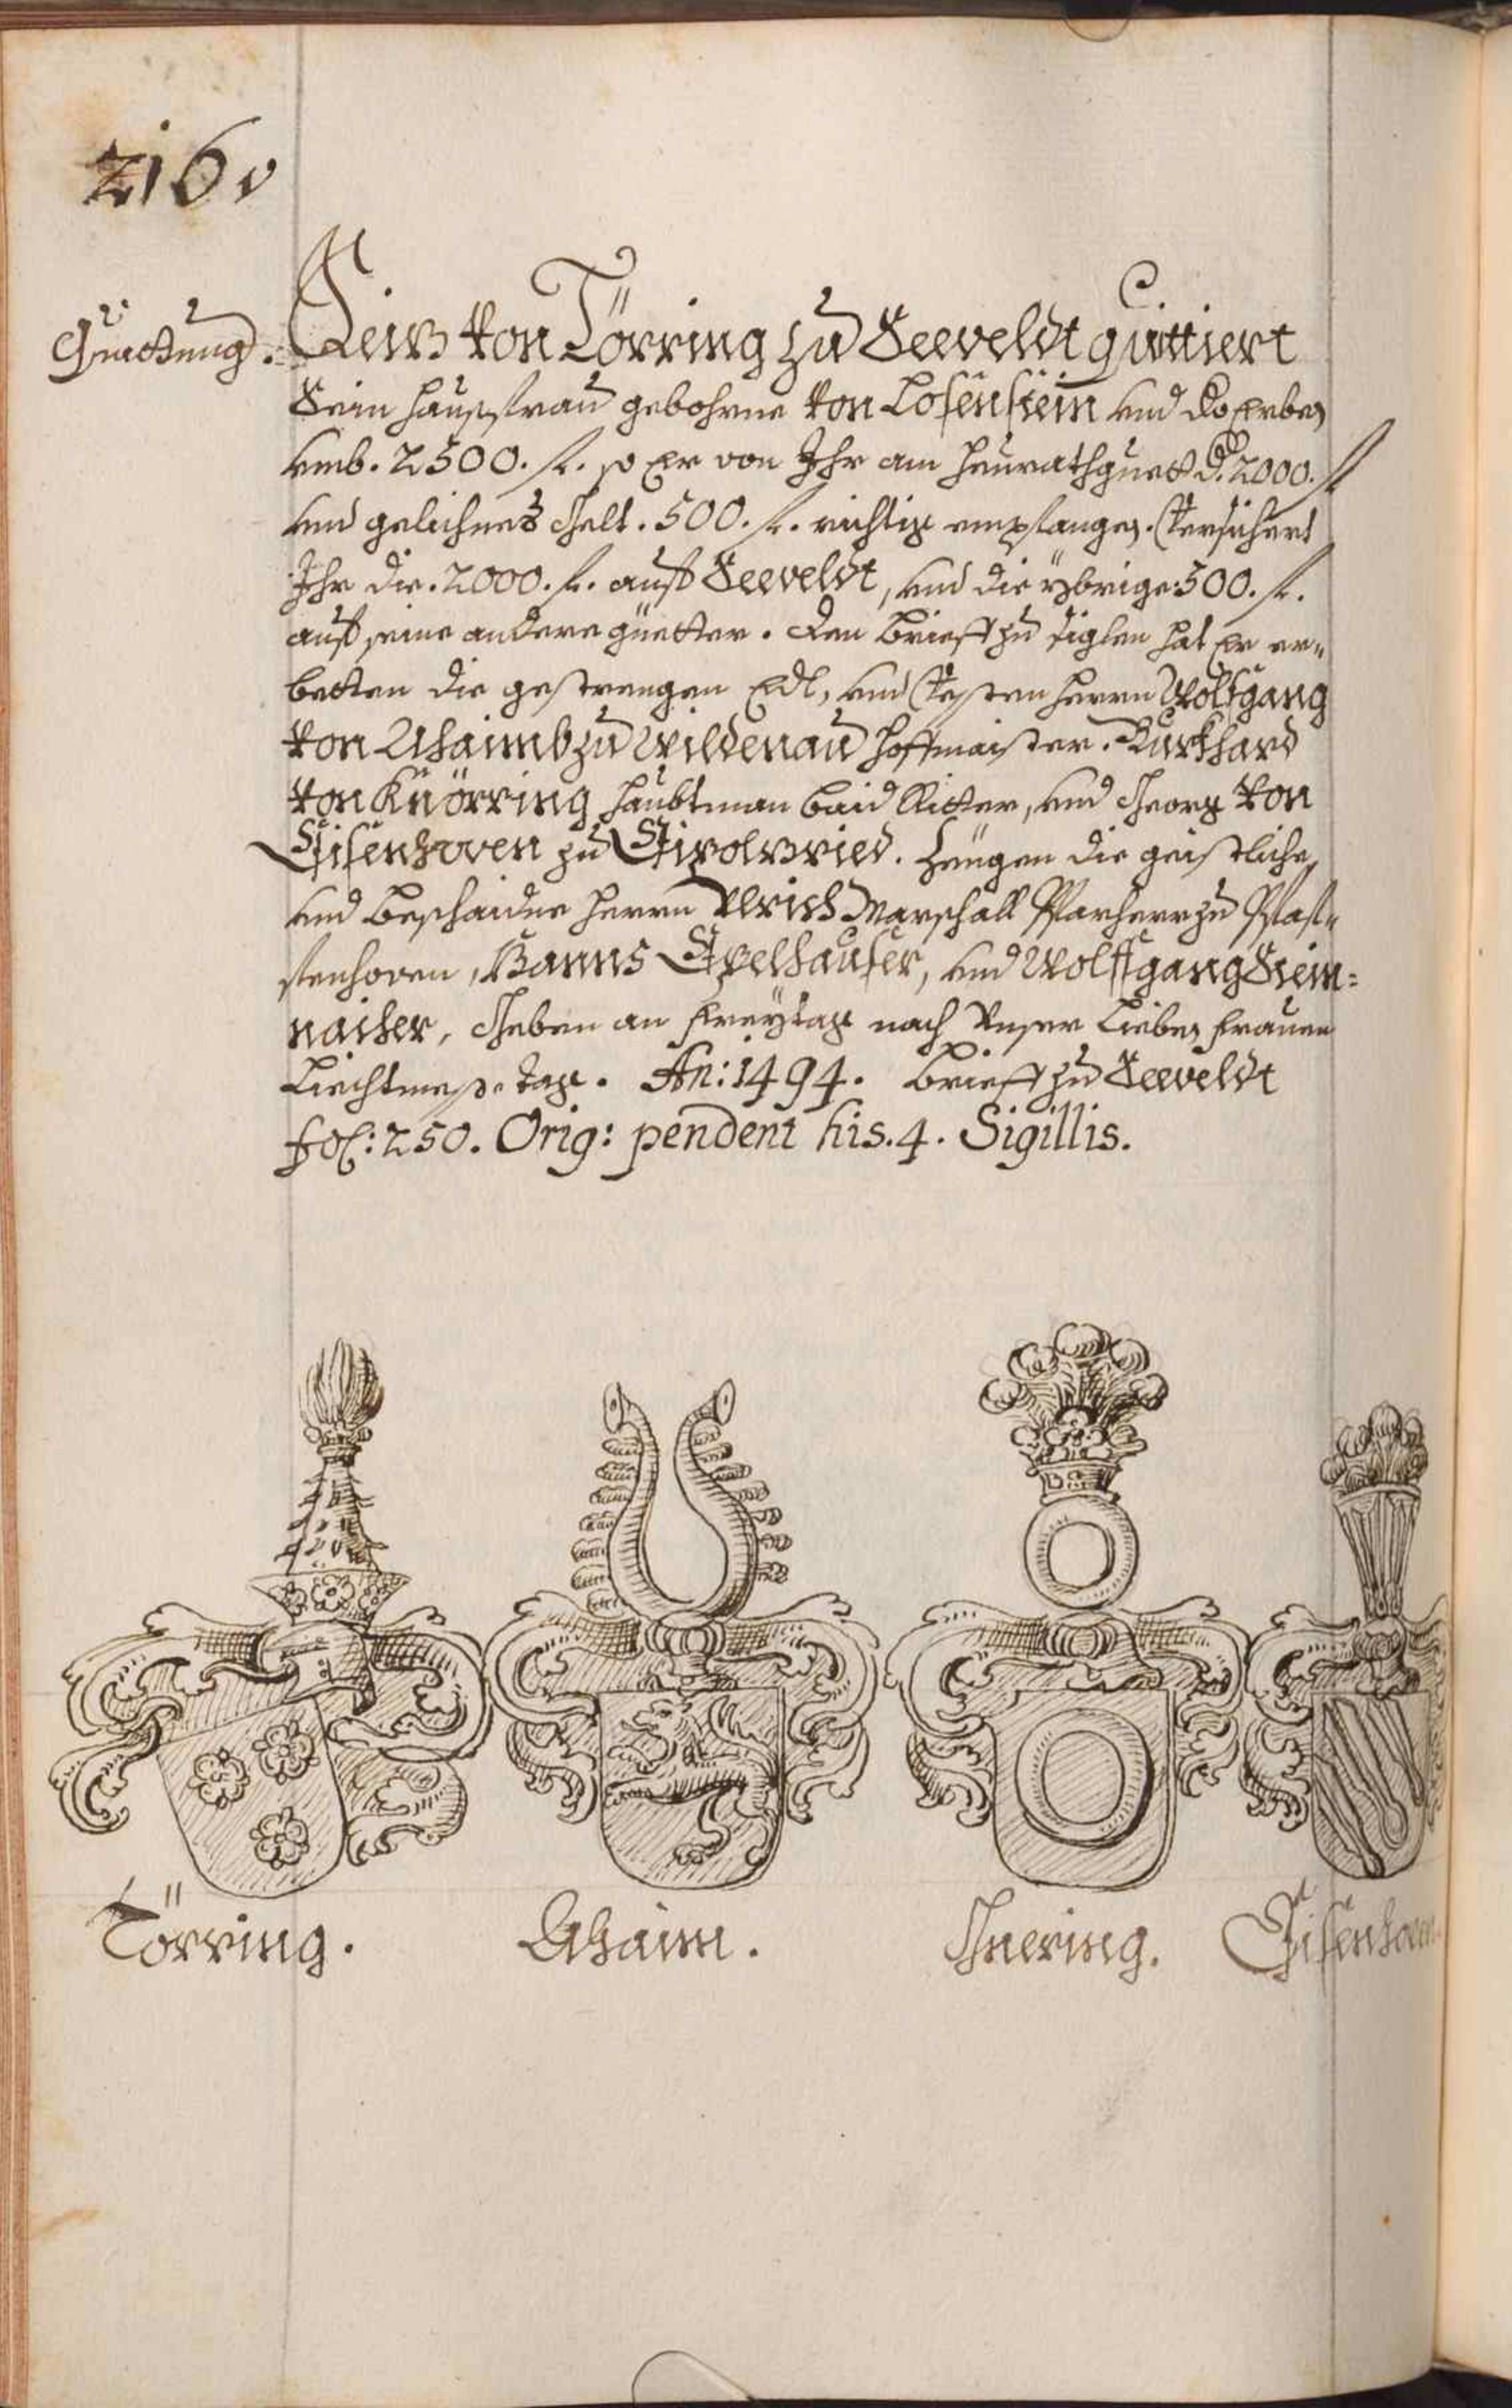 216v
Quettung.
Seiz von Törring zu Seeveldt quittiert
Sein haussfrau gebohrne von Losenstein und Ko Erben
umb. 2500. fl. so Er von Ihr am heurathguett d. 2000. fl
und gelichnes Gelt. 500. fl. richtig empfangen. Versichert
Ihr die. 2000. fl. auff Seeveldt, und die ybrige 500. fl.
auff seine andere güetter. Den Brieff zu siglen hat Er er-
betten die gestrengen Edl, und Vesten herrn Wolfgang
von Ahaimb zu Wildenau hoffmaister. Burkhard
von Knörring haubtman baid Ritter, und Georg von
Eisenhoven zu Eivolzried. Zeugen die geistliche
und beschaidne herrn Ulrich Marschall Pfarherr zu Pfaf-
fenhoven, Hanns Egelhauser, und Wolffgang Stein-
naicher, Geben an Freytag nach Unser Lieben frauen
Liechtmess. tag. An: 1494. Brieff zu Seeveldt
fol: 250. Orig: pendent his. 4. Sigillis.
Törring.
Ahaim.
Gnering.
Eisenhoven